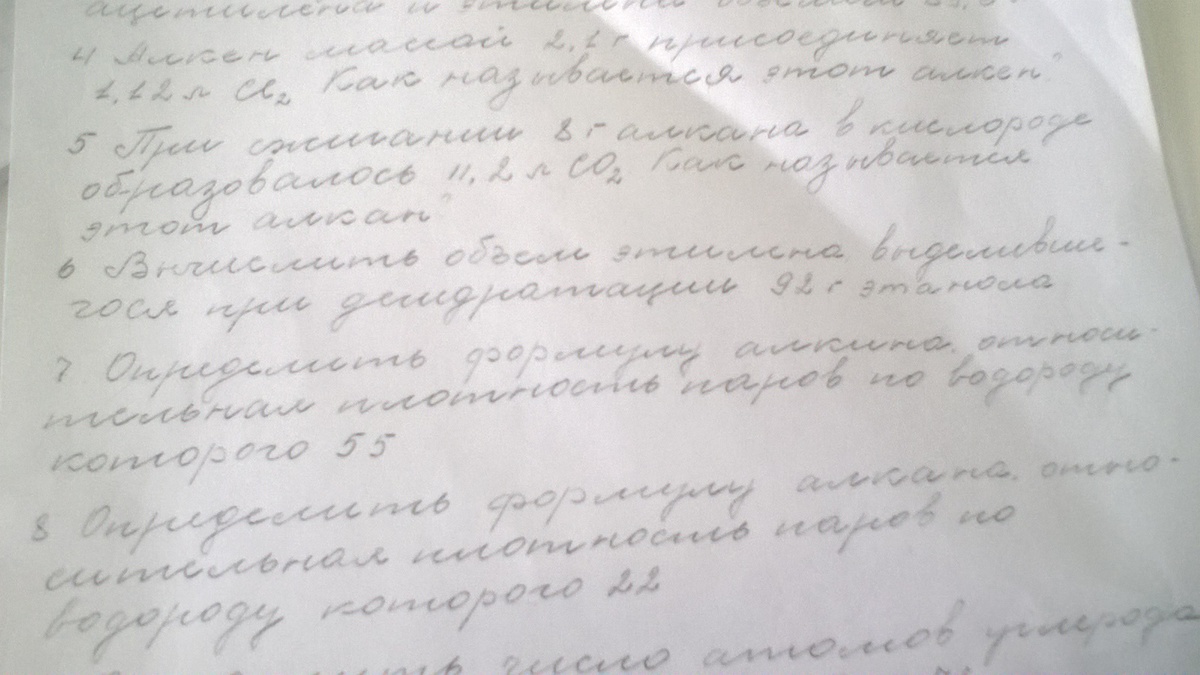 ацетилена и этилена объемом
4 Алкен массой 2,1 г присоединяет
1,12 л Cl₂ Как называется этот алкен?
5 При сжигании 8 г алкана в кислороде
образовалось 11,2 л CO₂ Как называется
этот алкан?
6 Вычислить объем этилена выделивше-
гося при дегидратации 92 г этанола
7 Определить формулу алкина. относи-
тельная плотность паров по водороду
которого 55
8 Определить формулу алкана. отно-
сительная плотность паров по
водороду которого 22
число атомов углерода